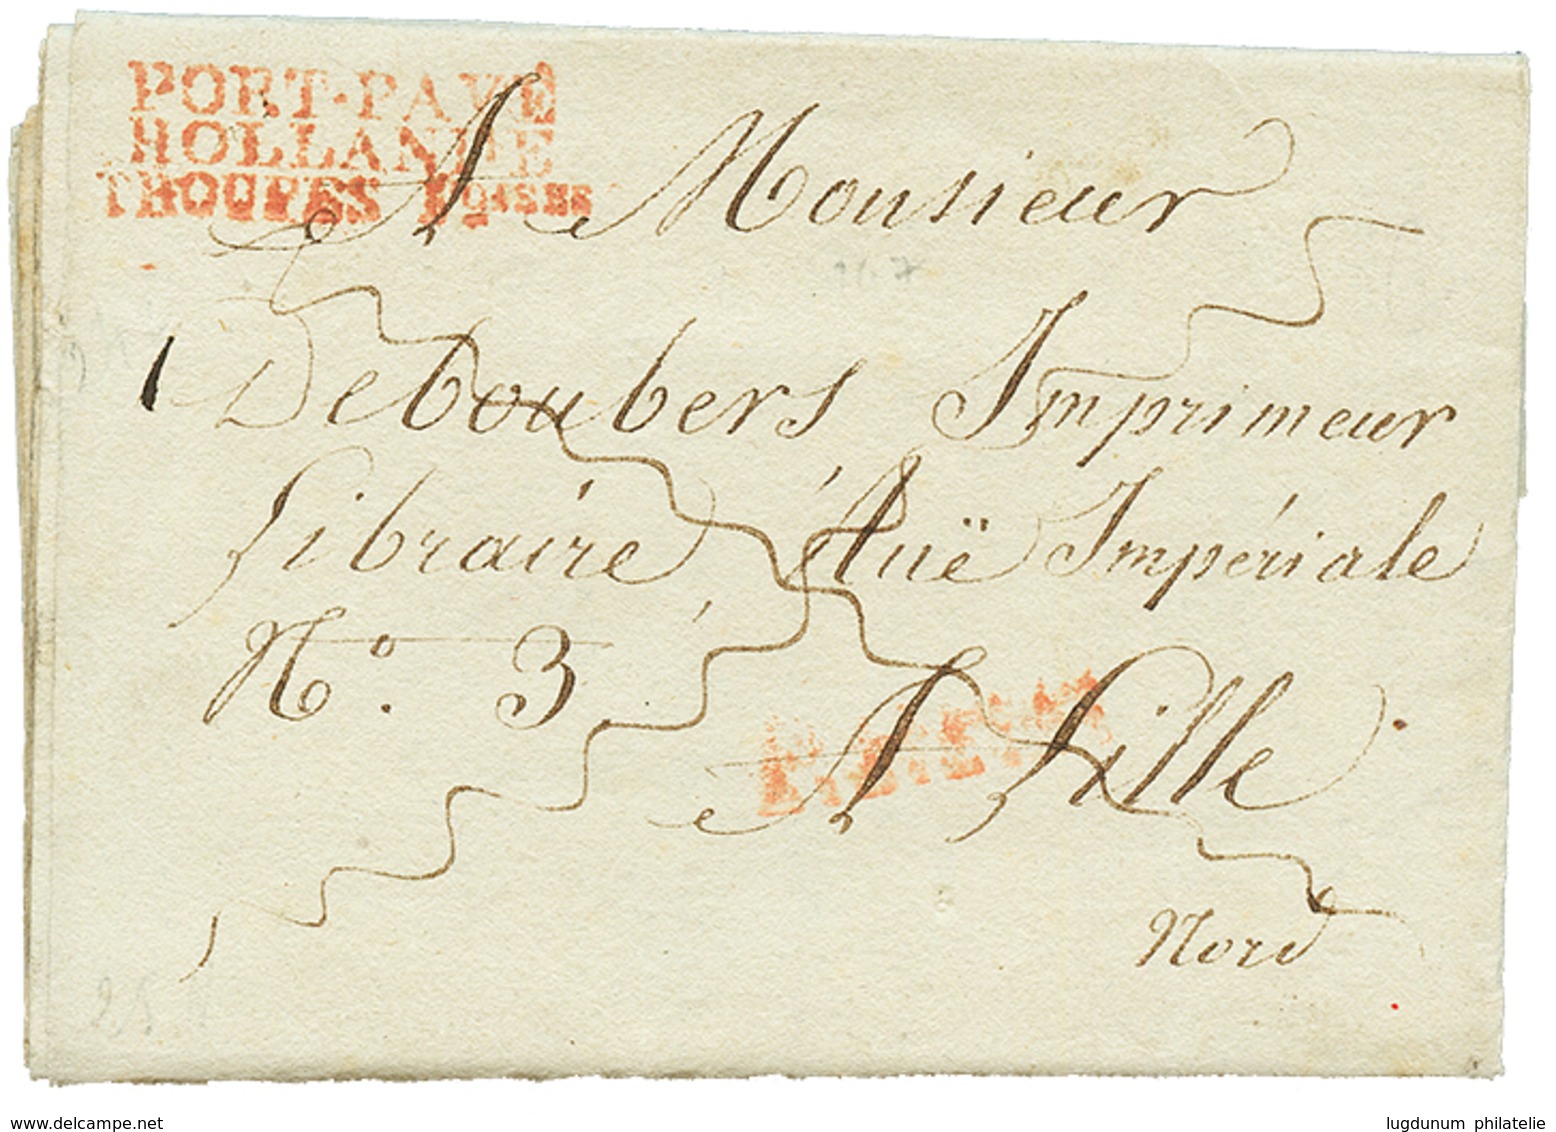 PORT-PAYÉ
HOLLANDE
TROUPES Fçaises
A Monsieur
Deboubers Imprimeur
Libraire, Ruë Impériale
N.o 3.
A Lille
Nord
25
www.delcampe.net
lugdunum philatelie